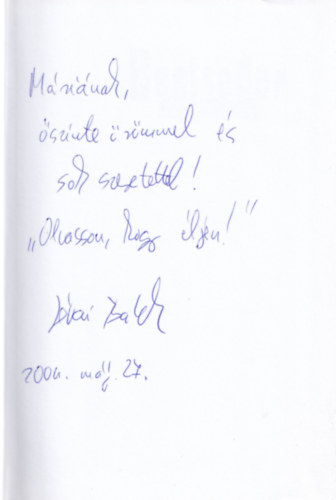 Máriának,
őszinte örömmel és
sok szeretettel!
„Olvasson, hogy éljen!"
2004. máj. 27.